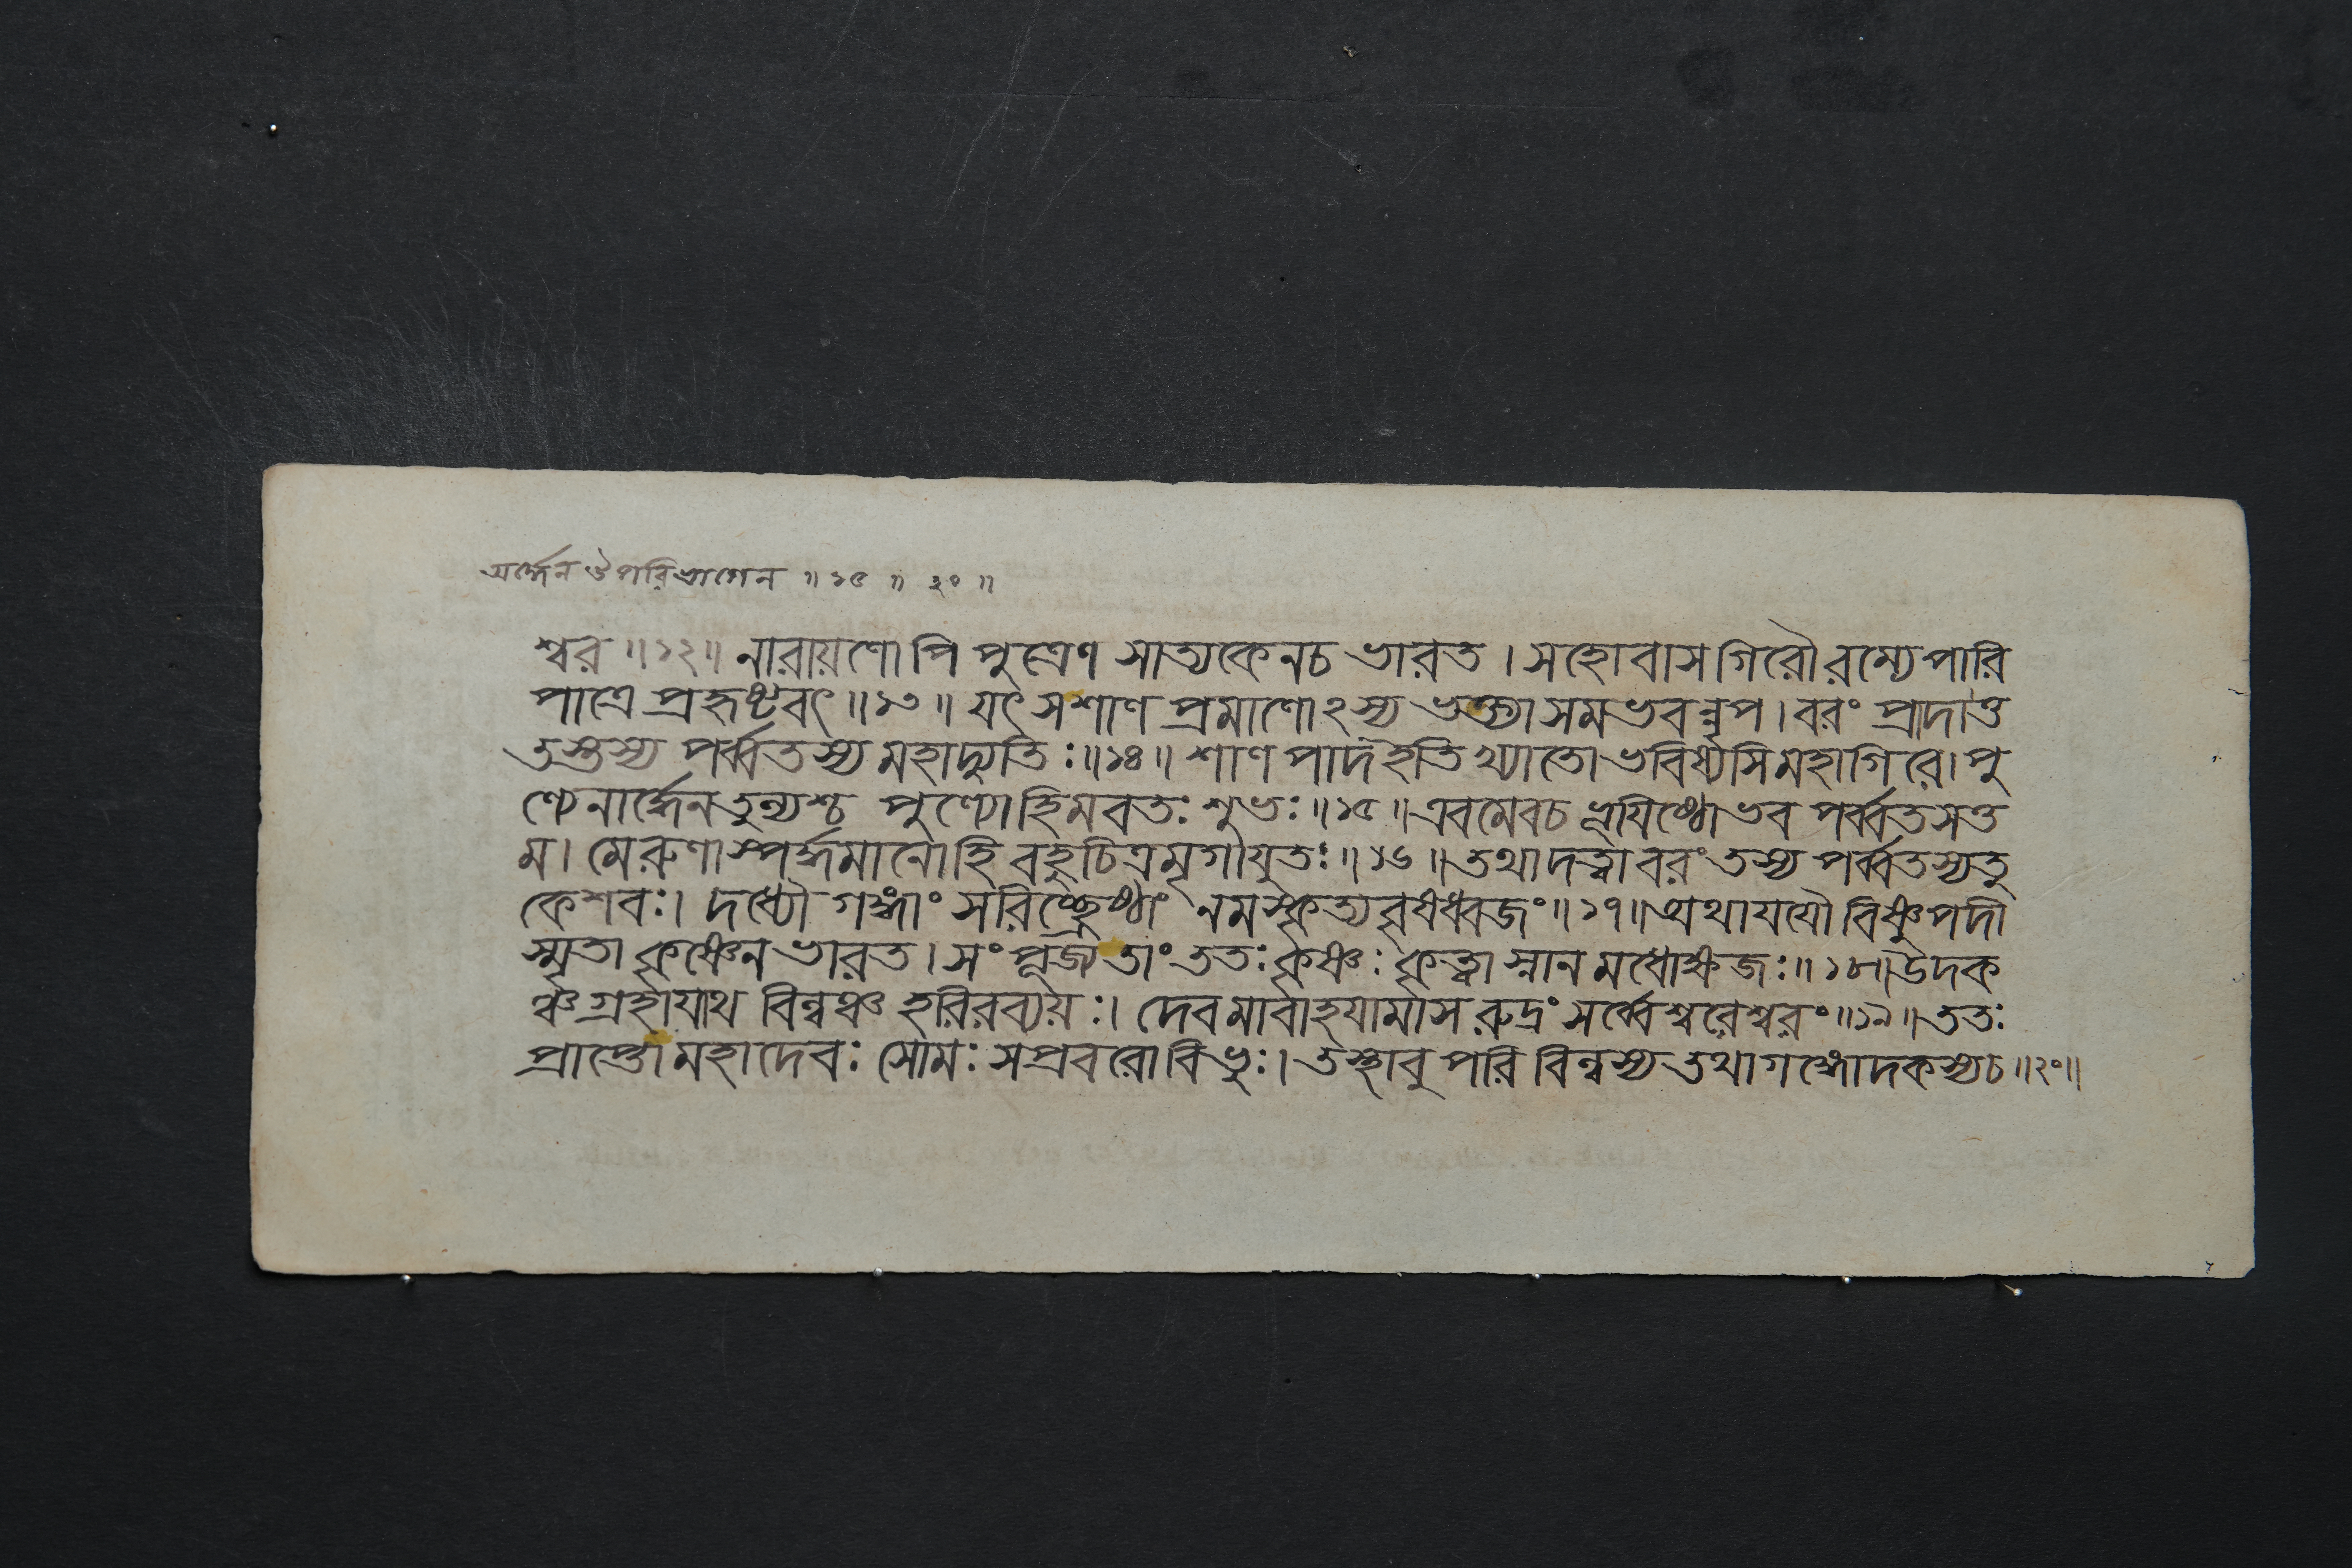 অর্দ্ধেন উপরিভাগেন ॥ ১৫ ॥ ২০ ॥
শ্বর ॥ ১২ ॥ নারায়ণোপি পুত্রেণ সাত্যকেনচ ভারত । সহোবাস গিরৌ রম্যে পারি
পাত্রে প্রহৃষ্টবৎ ॥ ১৩ ॥ যৎ সশাণ প্রমাণোঽস্য ভক্ত্যা সমভবন্নৃপ । বরং প্রাদাত্ত
তস্তস্য পর্ব্বতস্য মহাদ্যুতিঃ ॥ ১৪ ॥ শাণ পাদ ইতি খ্যাতো ভবিষ্যসি মহাগিরে । পু
ণ্যেনার্দ্ধেন তুল্যশ্চ পুণ্যো হিমবতঃ শুভঃ ॥ ১৫ ॥ এবমেবচ ভূযিষ্ঠো ভব পর্ব্বত সত্ত
ম । মেরুণা স্পর্দ্ধমানো হি বহুচিত্র মৃগাযুতঃ ॥ ১৬ ॥ তথা দত্ত্বা বরং তস্য পর্ব্বতস্য তু
কেশবঃ । দধ্যৌ গঙ্গাং সরিচ্ছ্রেষ্ঠাং নমস্কৃত্য বৃষধ্বজং ॥ ১৭ ॥ অথাযযৌ বিষ্ণুপদী
স্মৃতা কৃষ্ণেন ভারত । সংপূজ্য তাং ততঃ কৃষ্ণঃ কৃত্বা স্নান মধোক্ষজঃ ॥ ১৮ ॥ উদক
ঞ্চ গ্রহাযাথ বিল্বঞ্চ হরিরব্যয়ঃ । দেবমাবাহযামাস রুদ্রং সর্ব্বেশ্বরেশ্বরং ॥ ১৯ ॥ ততঃ
প্রাপ্তো মহাদেবঃ সোমঃ সপ্রবরো বিভুঃ । তস্থাবুপরি বিল্বস্য তথা গঙ্গোদকস্যচ ॥ ২০ ॥